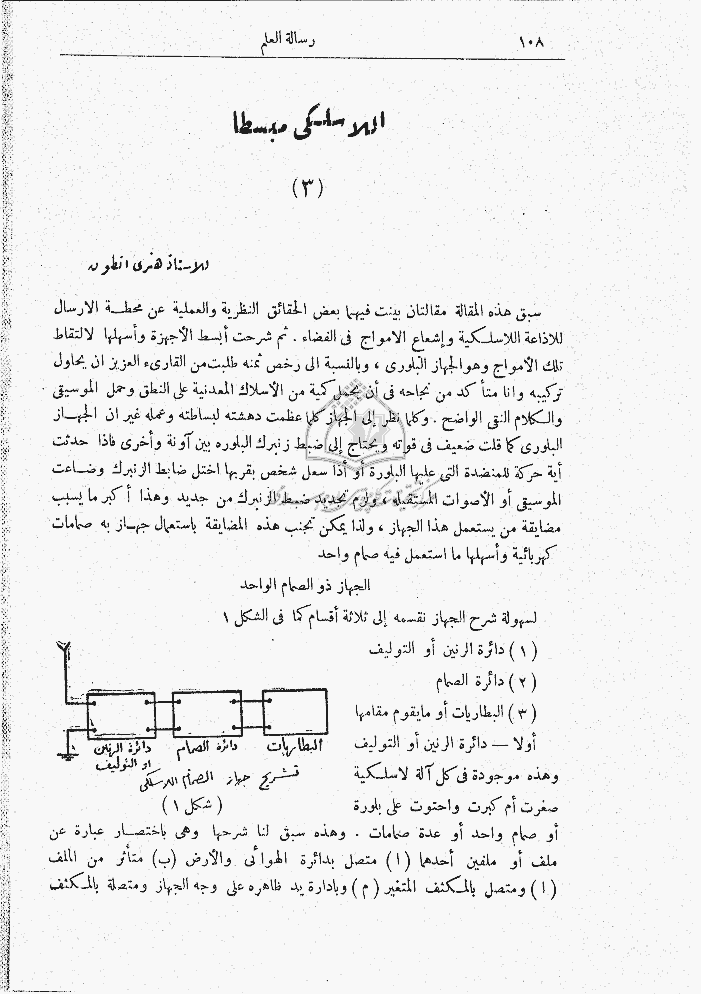 ١٠٨
رسالة العلم
اللاسلكى مبسطا
(٣)
للاستاذ هنرى انطون
سبق هذه المقالة مقالتان بينت فيهما بعض الحقائق النظرية والعملية عن محطة الارسال
للاذاعة اللاسلكية وإشعاع الامواج فى الفضاء . ثم شرحت أبسط الأجهزة وأسهلها لالتقاط
تلك الأمواج وهو الجهاز البلورى ، وبالنسبة الى رخص ثمنه طلبت من القارىء العزيز ان يحاول
تركيبه وانا متأكد من نجاحه فى أن يحمل كمية من الأسلاك المعدنية على النطق وحمل الموسيقى
والكلام النقى الواضح . وكلما نظر إلى الجهاز كلما عظمت دهشته لبساطته وعمله غير ان الجهاز
البلورى كما قلت ضعيف فى قوته ويحتاج إلى ضبط زنبرك البلوره بين آونة وأخرى فاذا حدثت
أية حركة للمنضدة التى عليها البلورة أو أذا سعل شخص بقربها اختل ضابط الزنبرك وضاعت
الموسيقى أو الأصوات المستقبله ، ولزم تجديد ضبط الزنبرك من جديد وهذا أكبر ما يسبب
مضايقة من يستعمل هذا الجهاز ، ولذا يمكن تجنب هذه المضايقة باستعمال جهاز به صمامات
كهربائية وأسهلها ما استعمل فيه صمام واحد
الجهاز ذو الصمام الواحد
لسهولة شرح الجهاز نقسمه إلى ثلاثة أقسام كما فى الشكل ١
(١) دائرة الرنين أو التوليف
(٢) دائرة الصمام
(٣) البطاريات أو مايقوم مقامها
أولا — دائرة الرنين أو التوليف
وهذه موجودة فى كل آلة لاسلكية
صغرت أم كبرت واحتوت على بلورة
البطاريات دائرة الصمام دائرة الرنين
او التوليف
تشريح جهاز الصمام اللاسلكى
(شكل ١)
أو صمام واحد أو عدة صمامات . وهذه سبق لنا شرحها وهى باختصار عبارة عن
ملف أو ملفين أحدهما (ا) متصل بدائرة الهوائى والأرض (ب) متأثر من الملف
(ا) ومتصل بالمكثف المتغير (م) وبادارة يد ظاهره على وجه الجهاز ومتصلة بالمكثف